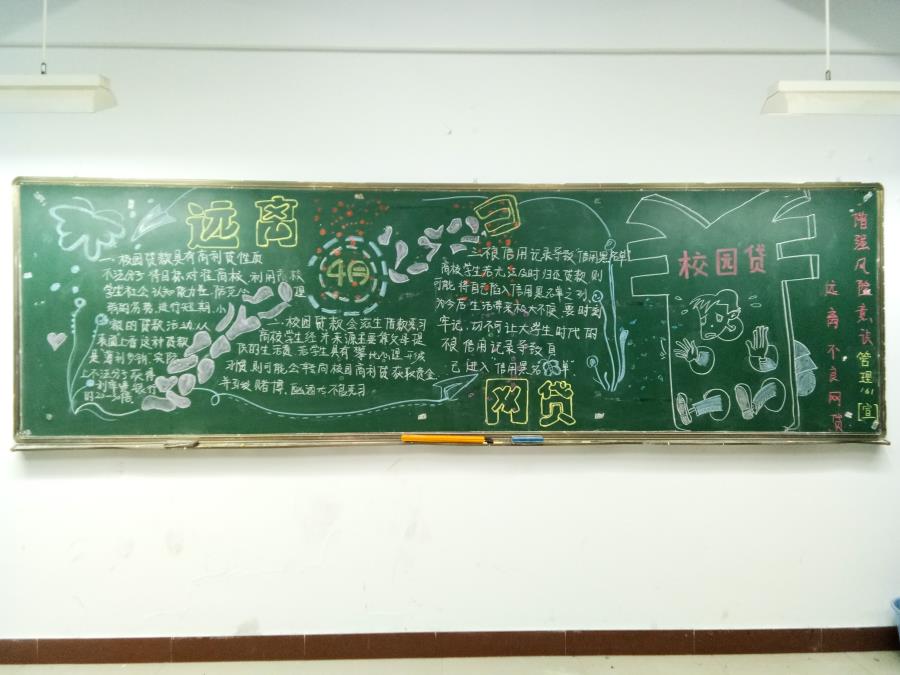 远离
一、校园贷款具有高利贷性质
不法分子将目标对准高校,利用高校
学生社会认知能力差,防范心
弱的劣势,进行短期、小
额的贷款活动,从
表面上看这种贷款
是薄利多销,实际
上不法分子获得
的20-30倍
二、校园贷款会滋生借款恶习
高校学生经济来源主要靠父母提
供的生活费,若学生具有攀比心理
习惯,则可能会转向校园高利贷获取资金
赌博、酗酒等不良恶习
三、不良信用记录导致"信用黑名单"
高校学生若无法及时归还贷款,则
可能将自己陷入信用黑名单之列,
为今后生活带来极大不便,要时刻
牢记,切不可让大学生时代的
不良信用记录导致自
己进入"信用黑名单"
网贷
校园贷
增强风险意识
远离不良网贷
管理161
宣